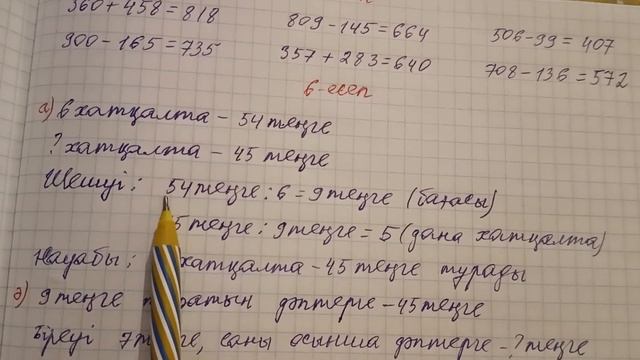 360 + 458 = 818 809 - 145 = 664 506 - 99 = 407
900 - 165 = 735 357 + 283 = 640 708 - 136 = 572
6-есеп
а) 6 хатқалта – 54 теңге
? хатқалта – 45 теңге
Шешуі: 54 теңге : 6 = 9 теңге (бағасы)
5 теңге : 9 теңге = 5 (дана хатқалта)
Жауабы: хатқалта – 45 теңге тұрады
ә) 9 теңге дәптерге – 45 теңге
Біреуі 7 саны осынша дәптерге – ? теңге